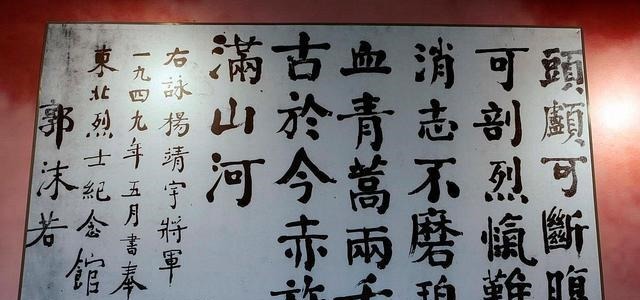 頭顱可斷腹
可剖烈愾難
消志不磨碧
血青蒿兩千
古於今赤
滿山河
右詠楊靖宇將軍
一九四九年五月書奉
東北烈士紀念館
郭沫若